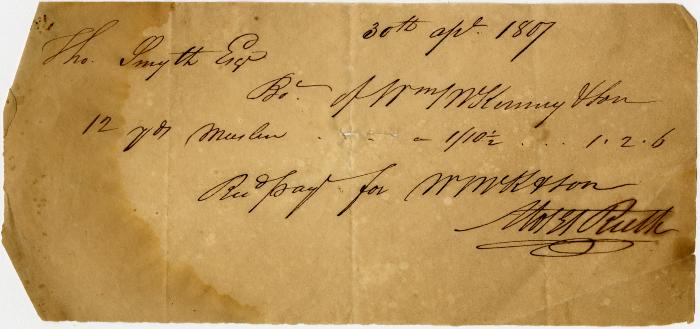 30th apl. 1807
Tho. Smyth Esqr
Bot. of Wm McKenney & Son
12 yds Muslin . . . a 1/10½ . . . 1.2.6
Recd payt for WMcK & Son
Ruth